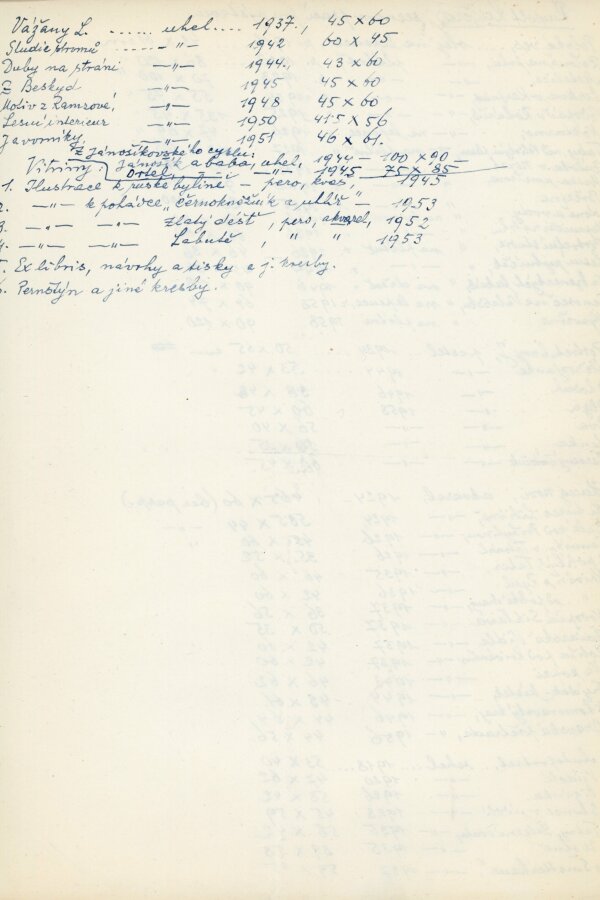 Vážany L. ...... uhel .... 1937., 45 x 60
Studie stromů ..... -"- 1942 60 x 45
Duby na stráni -"- 1944., 43 x 60
Z Beskyd -"- 1945 45 x 60
Motiv z Ramzové, -"- 1948 45 x 60
Lesní interieur -"- 1950 41'5 x 56
Javorníky -"- 1951 46 x 61.
Z Jánošíkovského cyklu:
Jánošík a bába, uhel, 1944 - 100 x 90 -
Vitriny: Ortel, -"- 1945 75 x 85
1. Ilustrace k ruské byline - pero, kvaš, 1945
2. -"- k pohádce „Černokněžník a uhlíř - 1953
3. -"- -"- Zlatý déšť, pero, akvarel, 1952
4. -"- -"- Labutě, " " 1953
5. Ex libris, návrhy a tisky a j. kresby.
6. Pernštýn a jiné kresby.